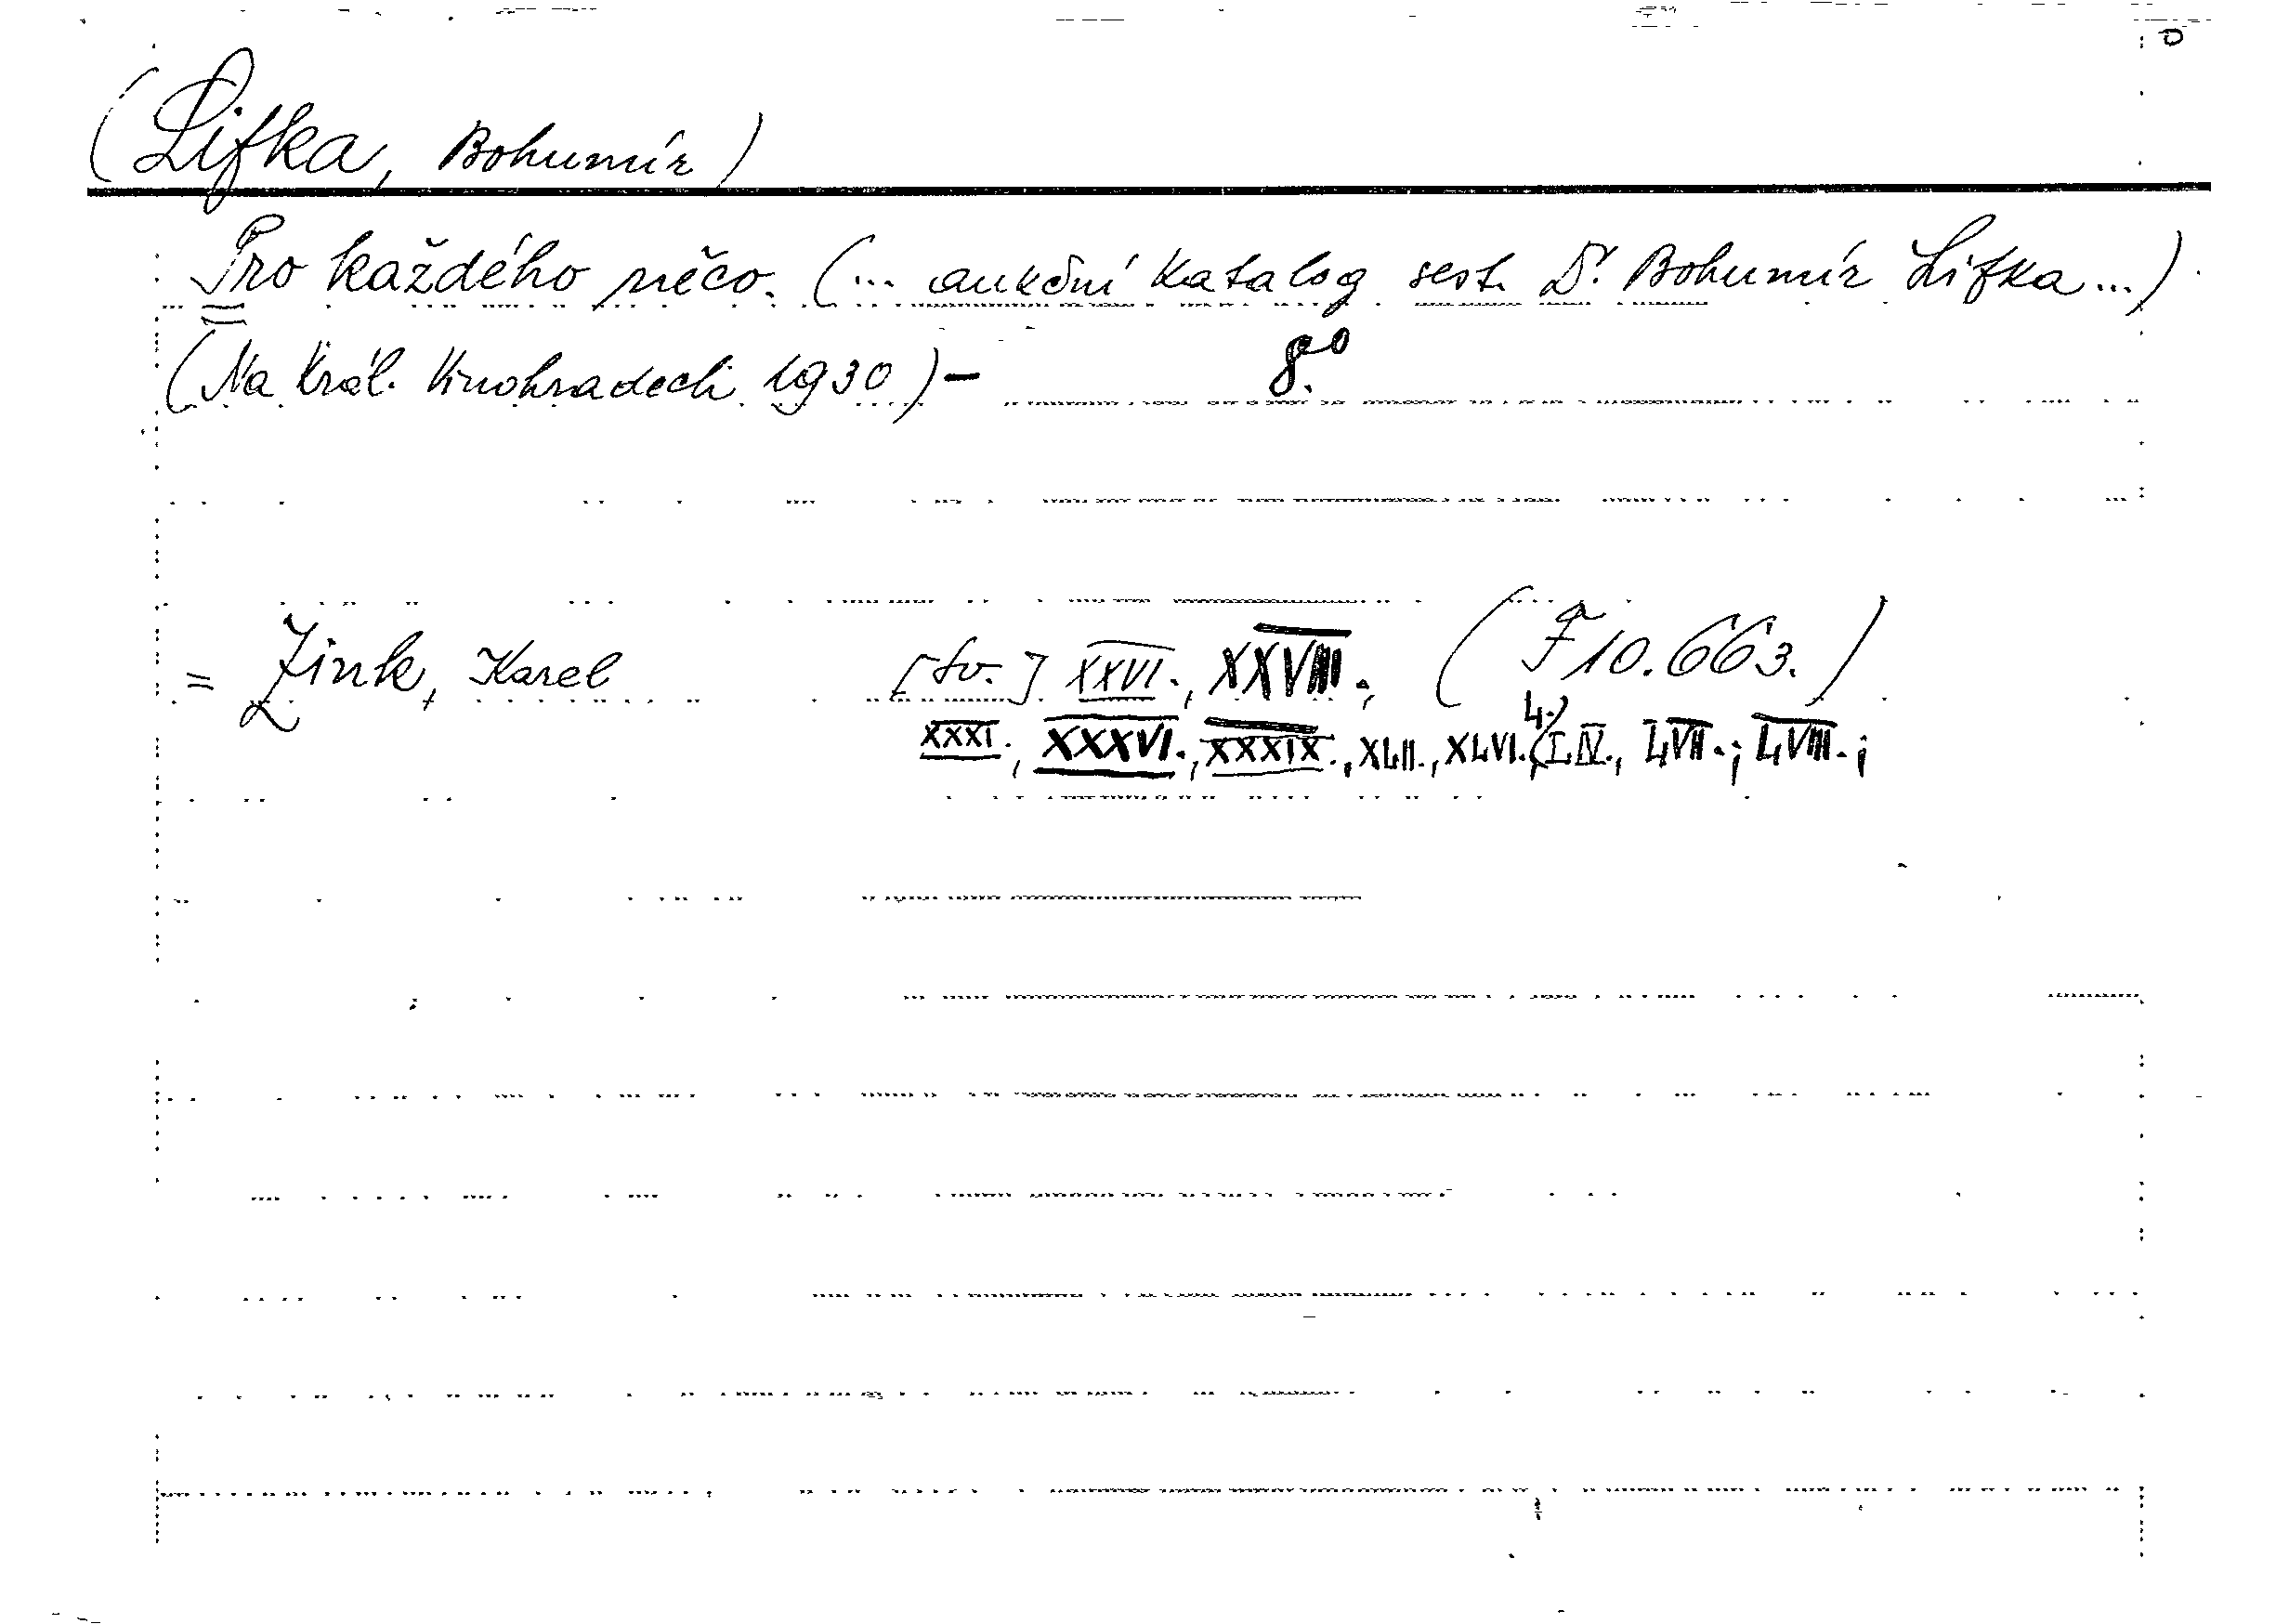 (Lifka, Bohumír)
Pro každého něco. (... aukční katalog sest. Dr. Bohumír Lifka ...)
(Na Král. Vinohradech 1930) - 8°.
= Zink, Karel [sv.] XXVI., XXVIII., (F 10.663.)
XXXI., XXXVI., XXXIX., XLII., XLVI., LIV., LVII.; LVIII.;